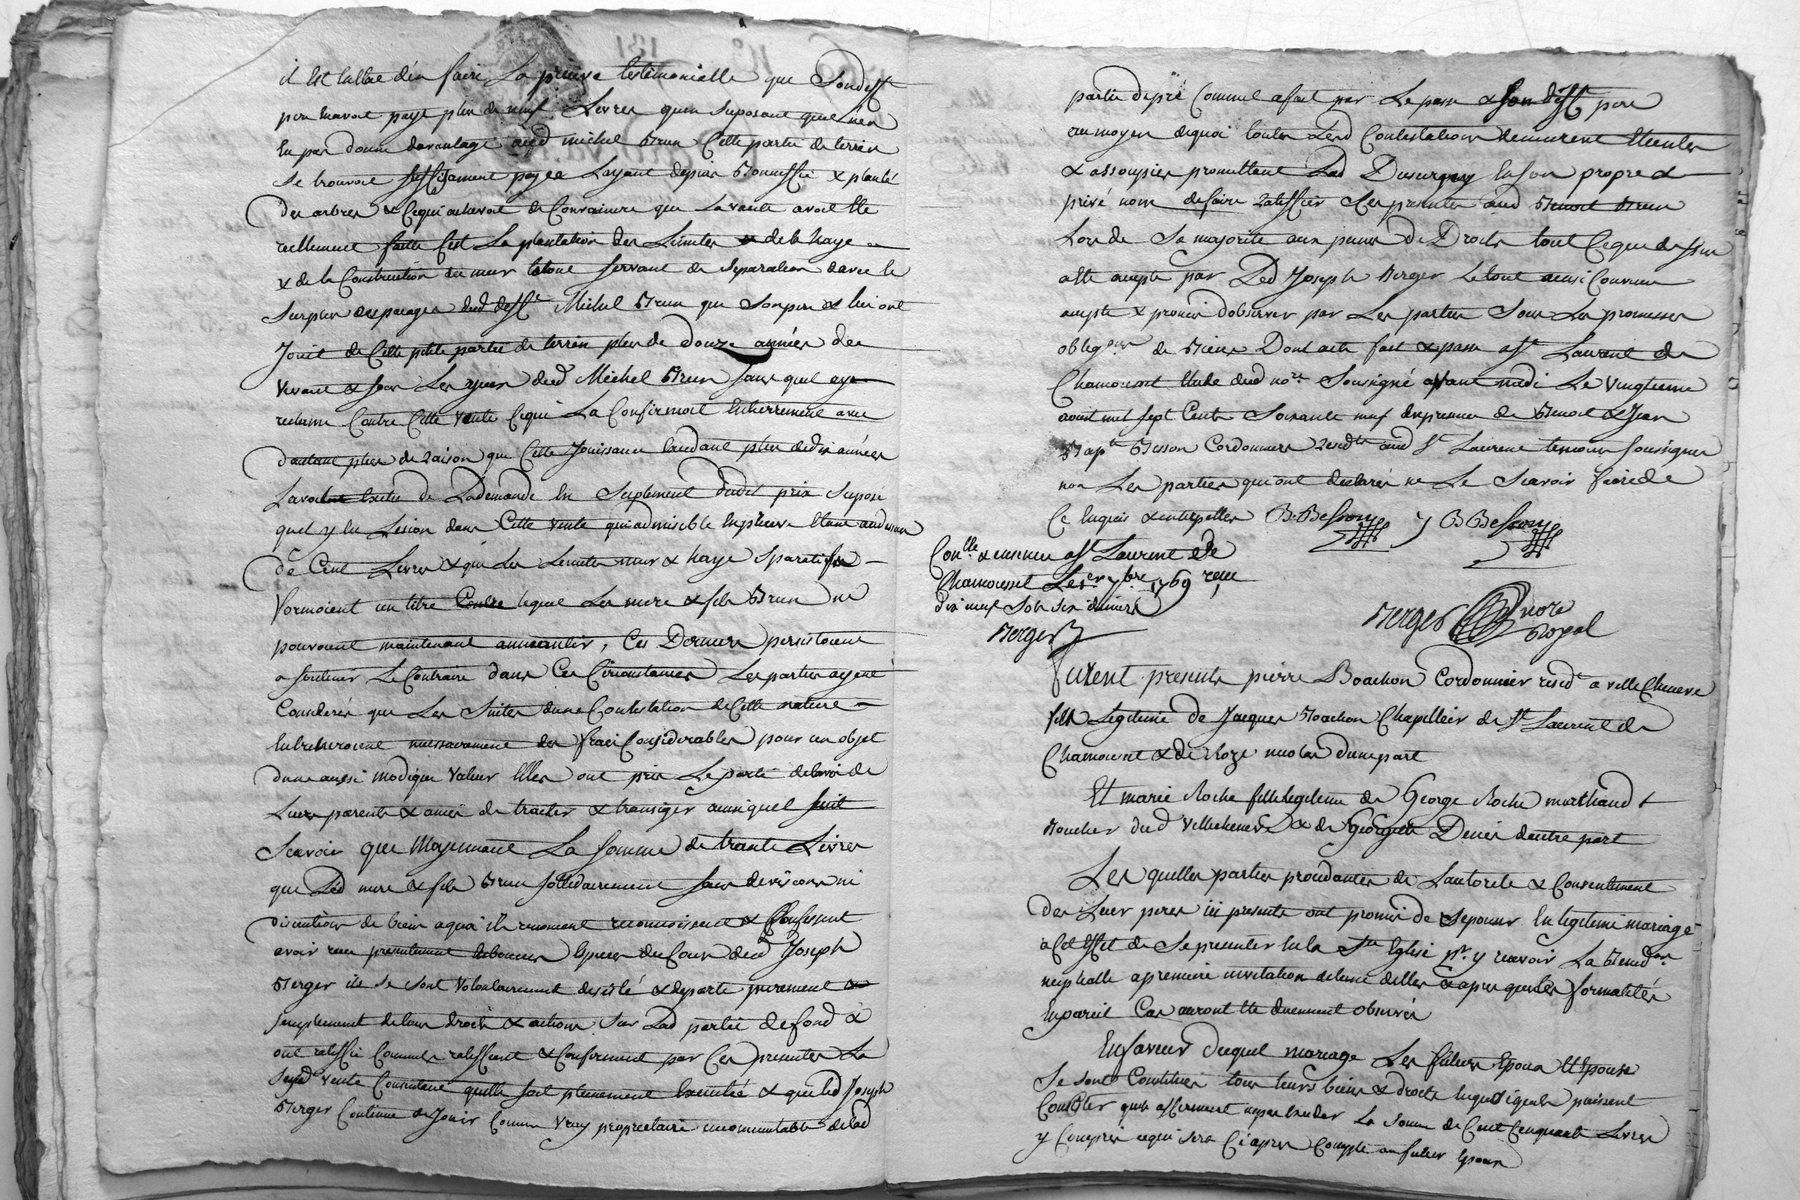 il est en etat d'en faire La preuve testimonielle que Sondt
pere navoit payé plus de neuf Livres quen suposant quil nen
eu pas donné davantage aud michel Brun Cette partie de terrein
Se trouvoit suffisament payée Layant depuis Bonnissié & planté
des arbres & Cequi achevoit de Convaincre que La vente avoit Eté
reellement faitte C'est La plantation des Limites & de la haye
& de la Construction du mur letout servant de Separation davec le
Surplus des pacages dud deft Michel Brun que Sonpere & lui ont
Jouit de Cette petite partie de terrein plus de douze années du
vivant & sous Les yeux dud Michel Brun sans quil aye
reclamé Contre Cette vente Cequi La Confirmoit Entierrement avec
dautant plus de raison que Cette Jouissance pendant plus de dix années
La demande En Suplement dudit prix Suposé
quil y eu Lesion dans Cette vente
de Cent Livres & que Les Limites mur & haye Separatifs
formoient un titre Contre lequel Les mere & fils Brun ne
pouvoient maintenant anneantir, Ces Derniers persistoient
a soutenir Le Contraire dans Ces Circonstances Les parties ayent
Considerés que Les Suites dune Contestation de Cette nature
Entreineroient necessairement des fraix Considerables pour un objet
dune aussi modique valeur Elles ont pris Le parti de lavis de
Leurs parents & amis de traiter & transiger ainsi quil suit
Scavoir que Moyennant La somme de trente Livres
que Led mere & fils Brun sollidairement sans division ni
discution de biens aquoi ils renoncent reconnoissent & Confessent
avoir recu presentement En bonnes Especes du Cours dud Joseph
Berger ils Se sont volontairement desisté & departi purement &
simplement de leurs droits & actions Sur Lad partie de fond &
ont ratiffié Comme ils ratiffient & Confirment par Ces presentes La
susd vente Consentent quelle soit pleinement Executée & que led Joseph
Berger Continue de Jouir Comme vray proprietaire incommutable de lad
partie de pré Comme il a fait par Le passé & Son dt pere
au moyen dequoi toutes Lesd Contestations demeurent Eteintes
& assoupies promettent Lad Dusurgey En son propre &
privé nom de faire ratiffier Ces presentes aud Benoit Brun
Lors de Sa majorité aux peines de Droits tout Ceque dessus
a Eté accepté par Led Joseph Berger Le tout ainsi Convenu
accepté & promis d'observer par Les parties Sous Les promesses
obligons de Biens Dont acte fait & passé a St Laurent de
Chamousset Etude dud nore Soussigné avant midi Le vingtieme
aoust mil sept Cents Soixante neuf En presence de Benoit & Jean
Bapte Besson Cordonniers residts aud St Laurent temoins soussignes
non Les parties qui ont declarés ne Le Scavoir faire de
Ce Enquis & interpellés B. Besson J B Besson
Conlle & insinué a St Laurent de
Chamousset Le 1er 7bre 1769 recu
dix neuf Sols Six deniers
Berger
Berger nore
Royal
Furent presents pierre Boachon Cordonnier residt a villeCheneve
fils Legitime de Jacques Boachon Chapellier de St Laurent de
Chamousset & de Roze nicolas dune part
Et marie Roche fille legitime de George Roche marchand &
Boucher dud villecheneve & de George Denis dautre part
Les quelles parties procedantes de Lautorité & Consentement
des Leur peres ici presents ont promis de Sepouser En legitime mariage
a Cet Effet de Se presenter En la Ste Eglise pr y recevoir La Benedon
nuptialle a premiere invitation de lune delles & apres que les formalités
En pareil Cas auront Eté duement observés
En faveur duquel mariage Les futurs Epoux & Epouse
Se sont Constitués tous leurs biens & droits En quoi quils puissent
Consister quils affirment La somme de Cent Cinquante Livres
y Compris cequi sera Ciapres Compté au futur Epoux